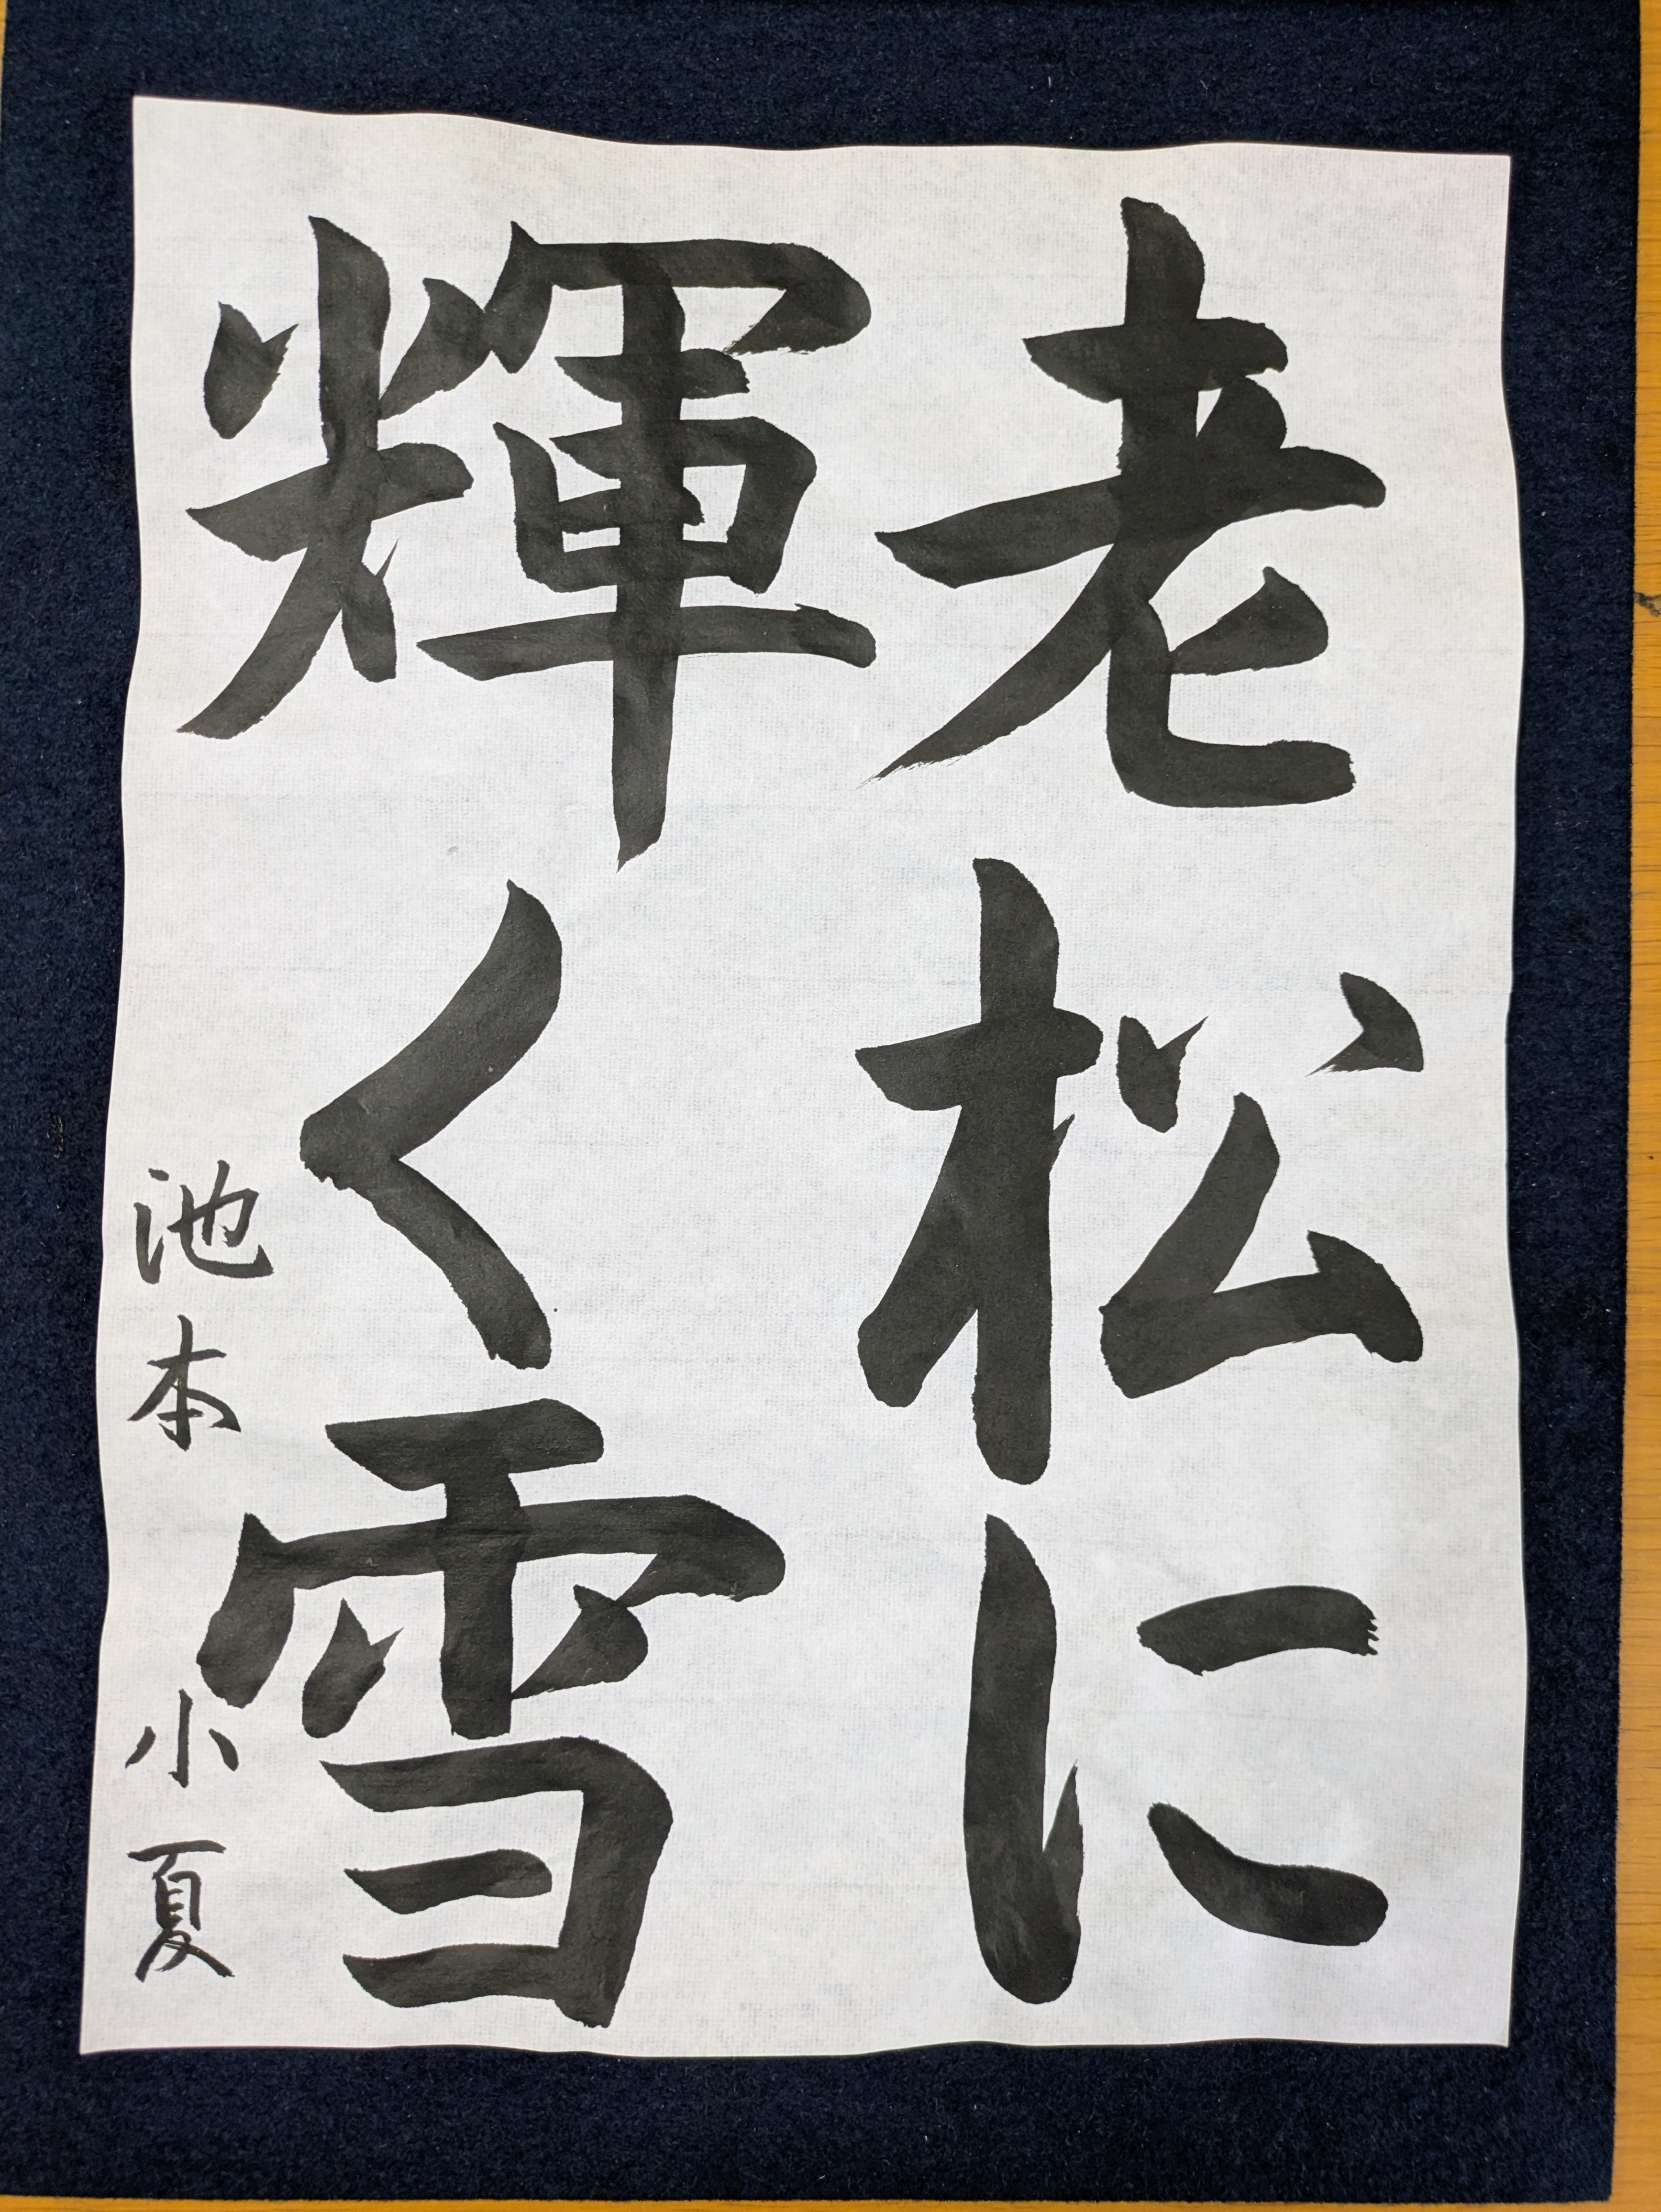 老松に
輝く雪
池本 小夏